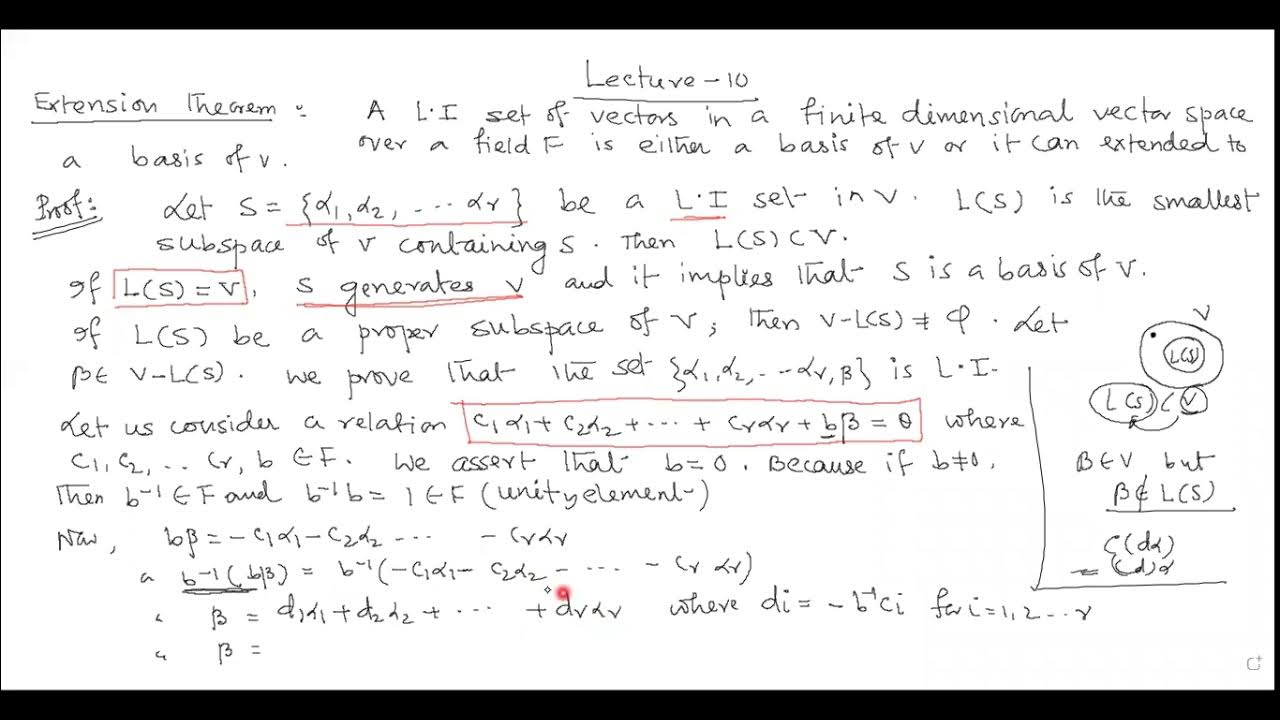 Lecture - 10
Extension Theorem : A L.I set of vectors in a finite dimensional vector space
over a field F is either a basis of V or it can extended to
a basis of V.
Proof: Let S = {α1, α2, ... αr} be a L.I set in V. L(S) is the smallest
subspace of V containing S. Then L(S) ⊂ V.
If L(S) = V, S generates V and it implies that S is a basis of V.
If L(S) be a proper subspace of V, then V-L(S) ≠ φ. Let
β ∈ V-L(S). We prove that the set {α1, α2, ... αr, β} is L.I.
Let us consider a relation c1α1 + c2α2 + ... + crαr + bβ = θ where
c1, c2, ... cr, b ∈ F. We assert that b = 0. Because if b ≠ 0,
Then b⁻¹ ∈ F and b⁻¹b = 1 ∈ F (unity element)
Now, bβ = -c1α1 - c2α2 ... - crαr
a b⁻¹(bβ) = b⁻¹(-c1α1 - c2α2 - ... - crαr)
" β = d1α1 + d2α2 + ... + drαr where di = -b⁻¹ci for i = 1, 2 ... r
" β =
V
L(S)
L(S) ⊂ V
β ∈ V, but
β ∉ L(S)
c(dα)
= (cd)α